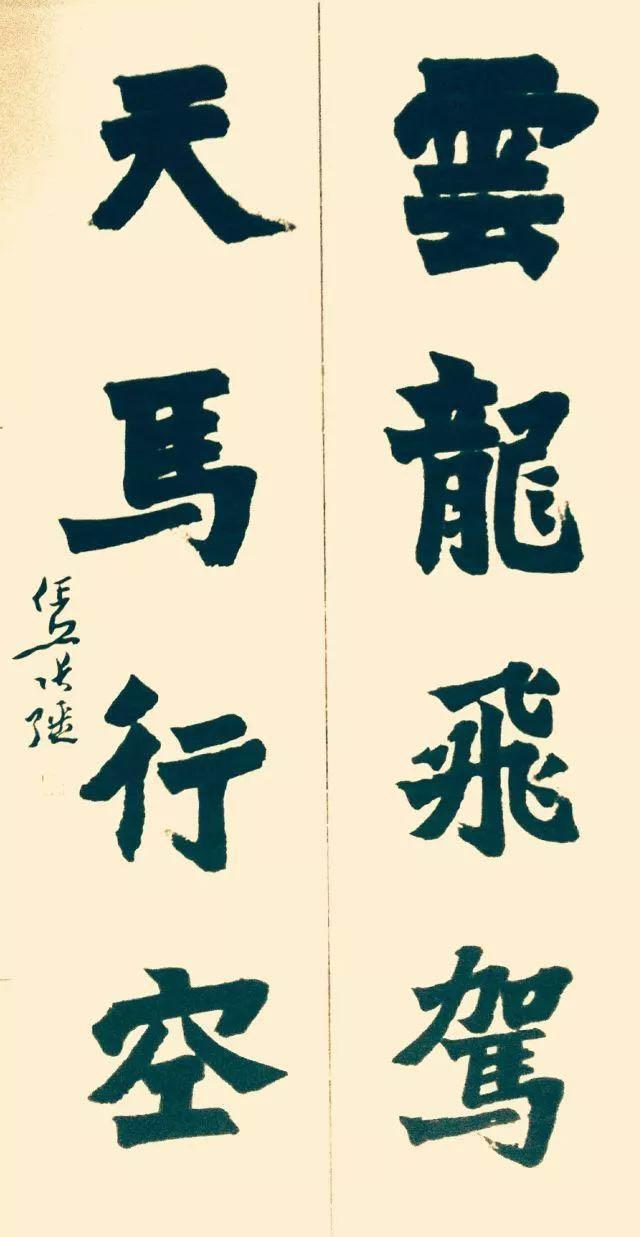 雲龍飛駕
天馬行空